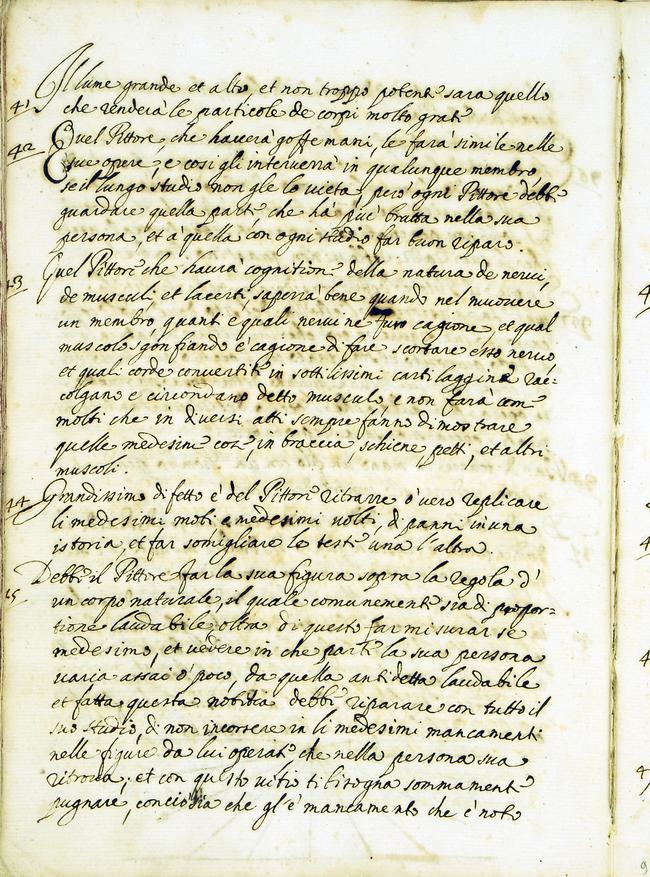 Il lume grande et alto, et non troppo potente sara quello
41 che renderà le particole de corpi molto grate
42 Quel Pittore, che haverà goffe mani, le farà simile nelle
sue opere, e cosi gli interverrà in qualunque membro,
se il lungo studio non gle lo vieta, però ogni Pittore debbe
guardare quella parte, che hà piu brutta nella sua
persona, et à quella con ogni studio far buon riparo.
43 Quel Pittore che haurà cognitione della natura de nervi,
de musculi et lacerti, saperrà bene quando nel muovere
un membro, quanti e quali nervi ne furo cagione, et qual
muscolo sgonfiando è cagione di fare scortare esso nervo
et quali corde convertite in sottilissimi cartilaggine rac:
colgano e circondano detto musculo e non farà come
molti che in diversi atti sempre fanno dimostrare
quelle medesime cose, in braccia, schiene petti, et altri
muscoli.
44 Grandissimo difetto è del Pittore ritrarre ò vero replicare
li medesimi moti e medesimi volti, di panni in una
istoria, et far somigliare le teste una l'altra.
Debbe il Pittore far la sua figura sopra la regola d'
45 un corpo naturale, il quale comunemente sia di propor:
tione laudabile oltra di questo far misurar se
medesimo, et vedere in che parte la sua persona
varia assai ò poco, da quella antidetta laudabile
et fatta questa notitia debbe riparare con tutto il
suo studio, di non incorrere in li medesimi mancamenti
nelle figure da lui operate che nella persona sua
ritrova; et con questo vitio ti bisogna sommamente
pugnare, conciosia che gl'è mancamento che è nato